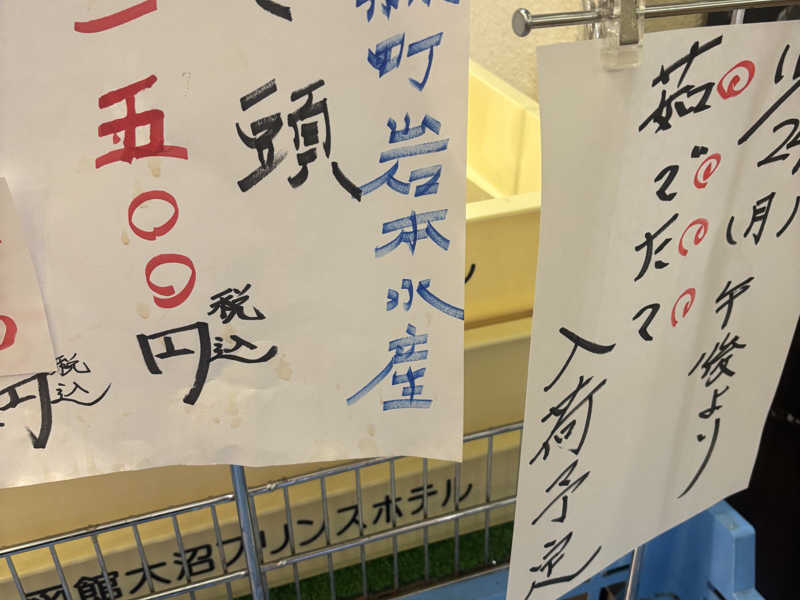 (月)午後より
茹でたて
入荷予定
町 岩本水産
頭
一五〇〇円税込
円税込
函館大沼プリンスホテル